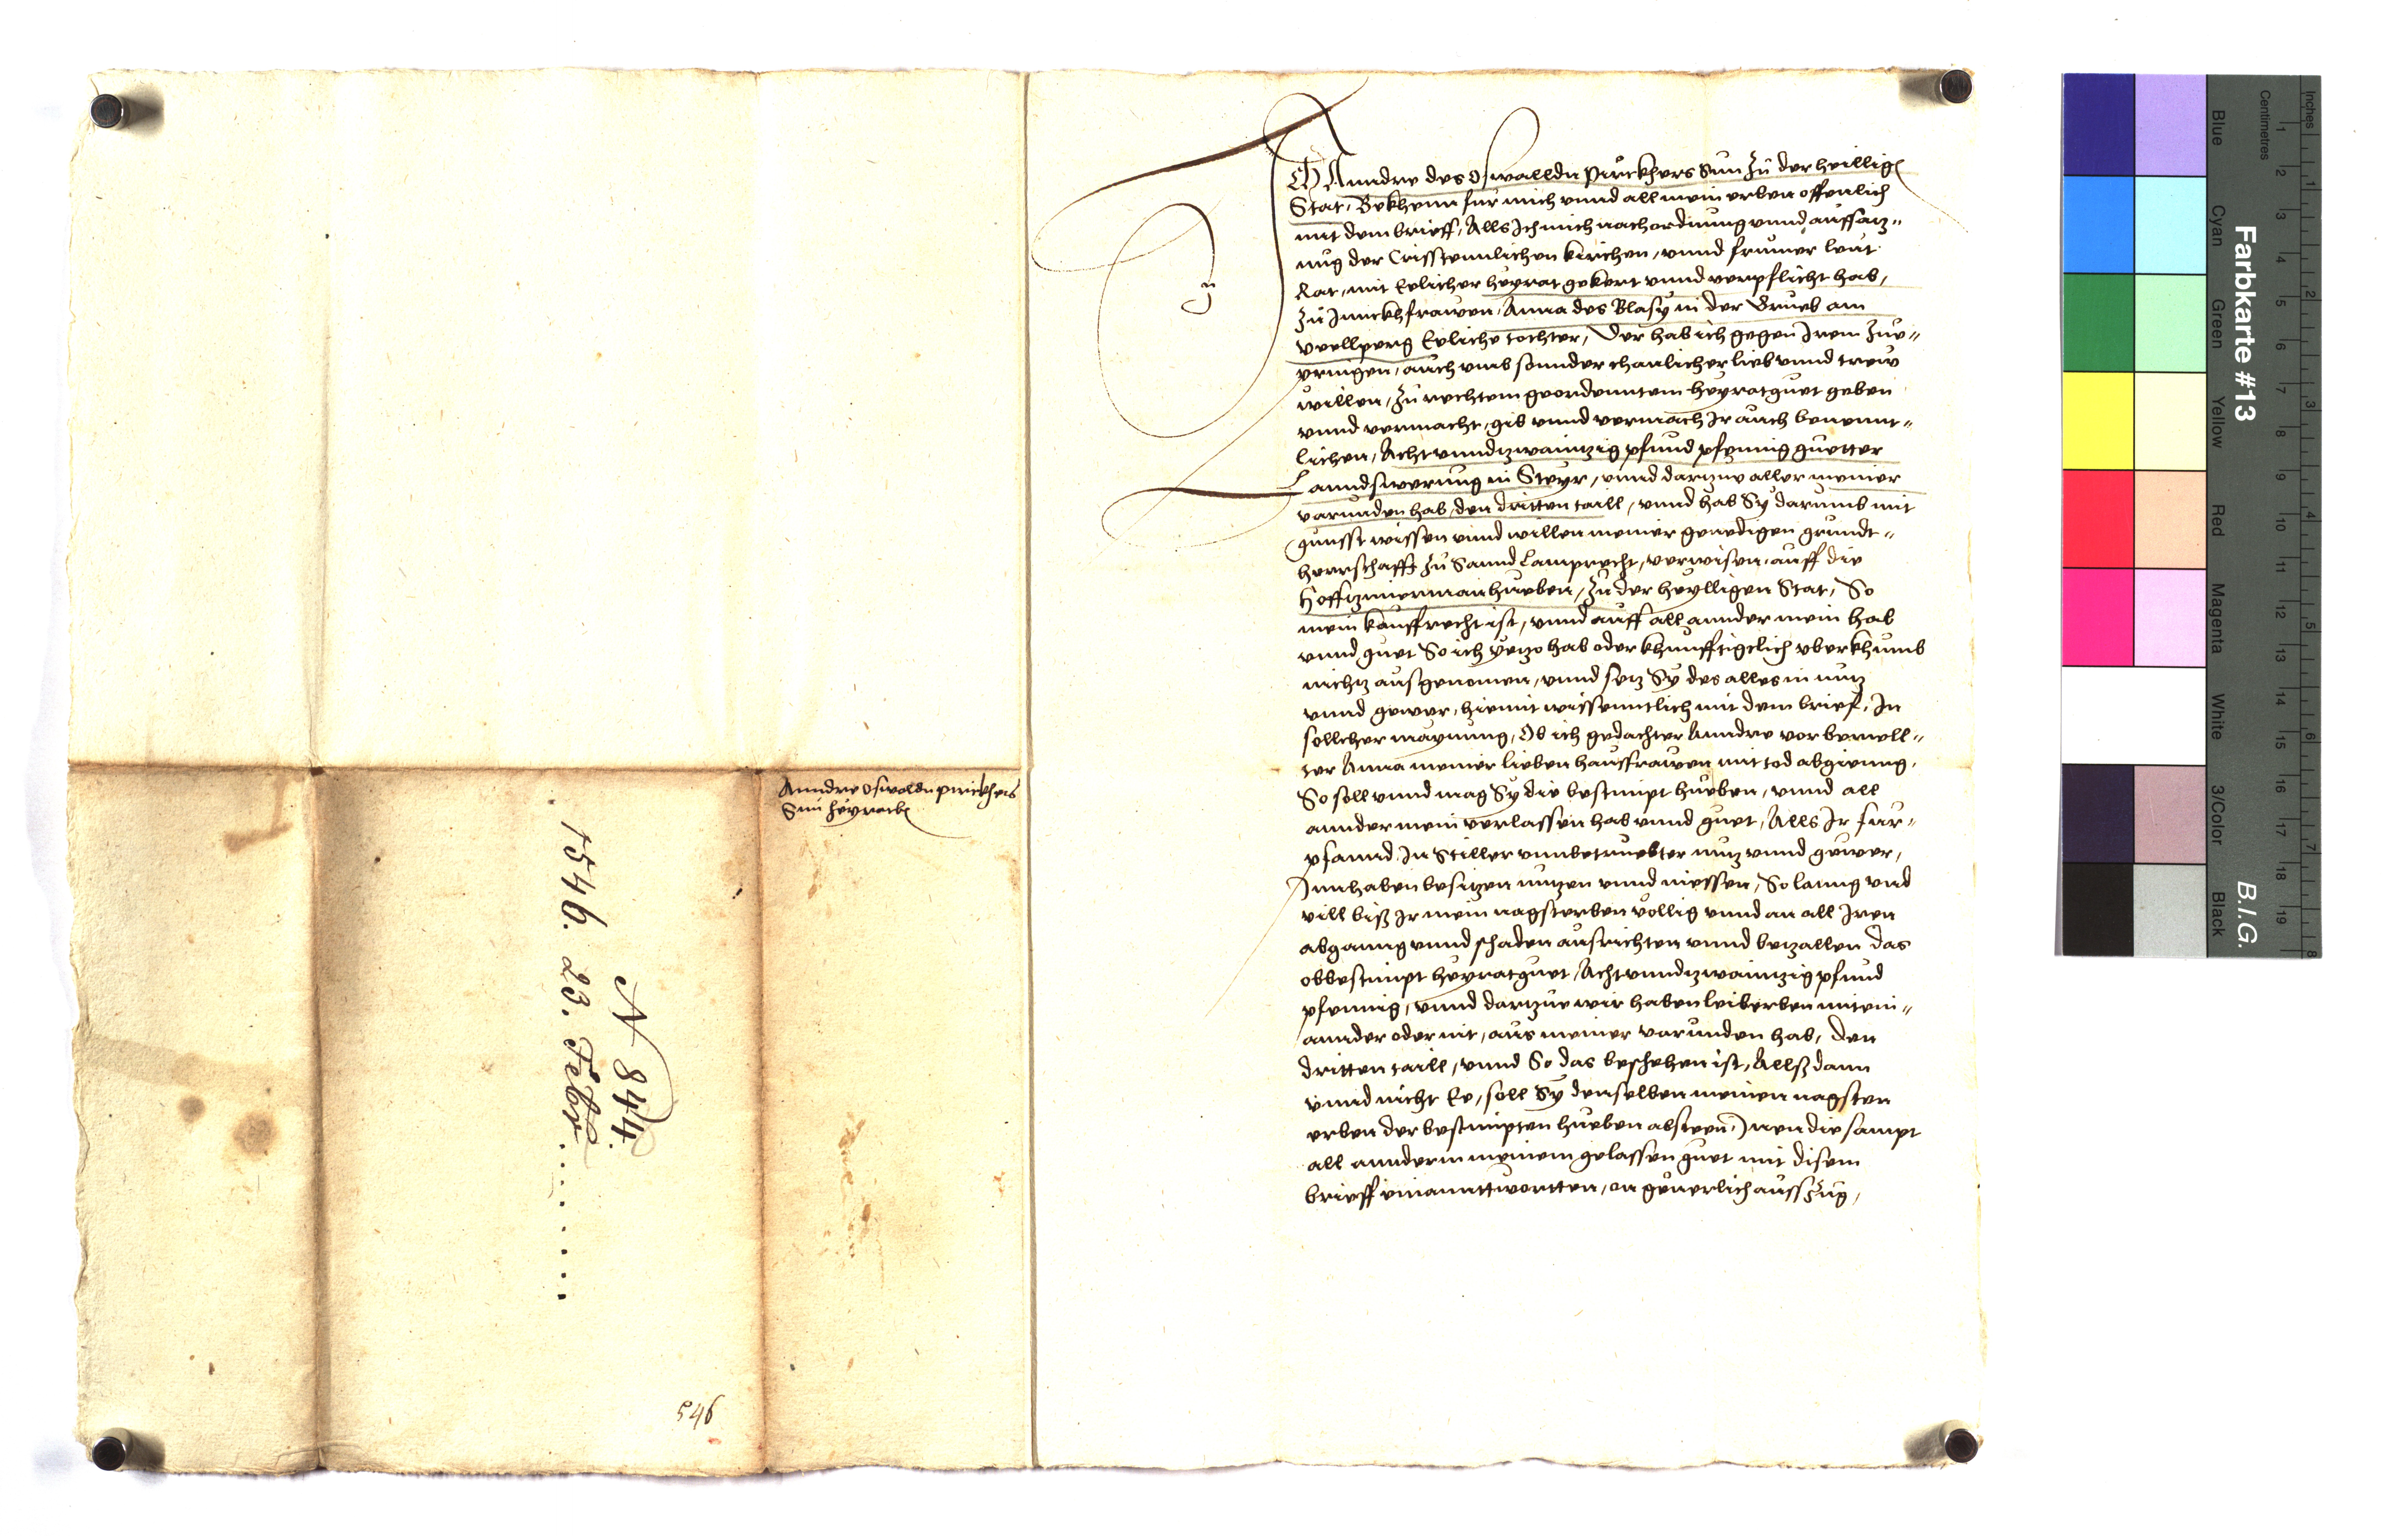 Anndre Oswalldn pirckhers
Sun heyratb
1546. 23. Febr. . . . . . . . .
N 844
546
Ich Anndre des Oswalldn Pirckhers Sun zu der heillign
Stat, Bekhenn fur mich vnnd all mein erben offenlich
mit dem brieff, Alls Ich mich nach ordnung vnnd auffsatz„
ung der Cristennlichen kirchen, vnnd frumer leut
Rat, mit Eelicher heyrat gekert vnnd verpflicht hab,
zu Junckhfrawen, Anna des Blasy in der Grueb am
veellperg Eeliche tochter, Der hab ich gegen Irem zue„
pringen, auch vmb sonnder ehaulicher lieb vnnd trew
willen, zu rechtem geordenntem heyratguet geben
vnnd vermacht, gib vnnd vermach Ir auch benennt„
lichen, Acht vnndtzwaintzig pfund pfenning guetter
Lanndswerung in Steyr, vnnd dartzue aller meiner
varunden hab, den dritten taill, vnnd hab Sy darumb mit
gunsst wissen vnnd willen meiner genedigen grundt„
herrschafft zu Sannd Lamprecht, verwisen, auff die
Hoffzimerman hueben, zu der heylligen Stat, So
mein kauffrecht ist, vnnd auff all annder mein hab
vnnd guet So ich yetzo hab oder khunfftigclich vberkhumb
nichtz ausgenomen, vnnd setz Sy des alles in nutz
vnnd gewer, hiemit wissenntlich mit dem brief, In
sollcher maynung, Ob ich gedachter Anndre vor bemell„
ter Anna meiner lieben hausfrawen mit tod abgienng,
So soll vnnd mag Sy die bestimpt hueben, vnnd all
annder mein verlassen hab vnnd guet, Alls Ir fur„
pfannd In stiller vnnbetruebter nutz vnnd gewer,
Innhaben besitzen nutzen vnnd niessen, So lanng vnd
vill biß Ir mein nagst erben vollig vnnd an all Iren
abganng vnnd schaden ausrichten vnnd betzallen das
obbestimpt heyratguet, Acht vnndtzwaintzig pfund
pfenning, vnnd dartzue wir haben leiberben mitein„
annder oder nit, aus meiner varunden hab, den
dritten taill, vnnd So das beschehen ist, Allß dann
vnnd nicht Ee, soll Sy denselben meinen nagsten
erben der bestimpten hueben absteen, Inen die sampt
all annderm meinem gelassen guet mit disem
brieff einanntwortten, on geuerlich ausszug,
Farbkarte #13
B.I.G.
Inches
Centimetres
1 2 3 4 5 6 7 8 9 10 11 12 13 14 15 16 17 18 19
1 2 3 4 5 6 7 8
Blue
Cyan
Green
Yellow
Red
Magenta
White
3/Color
Black